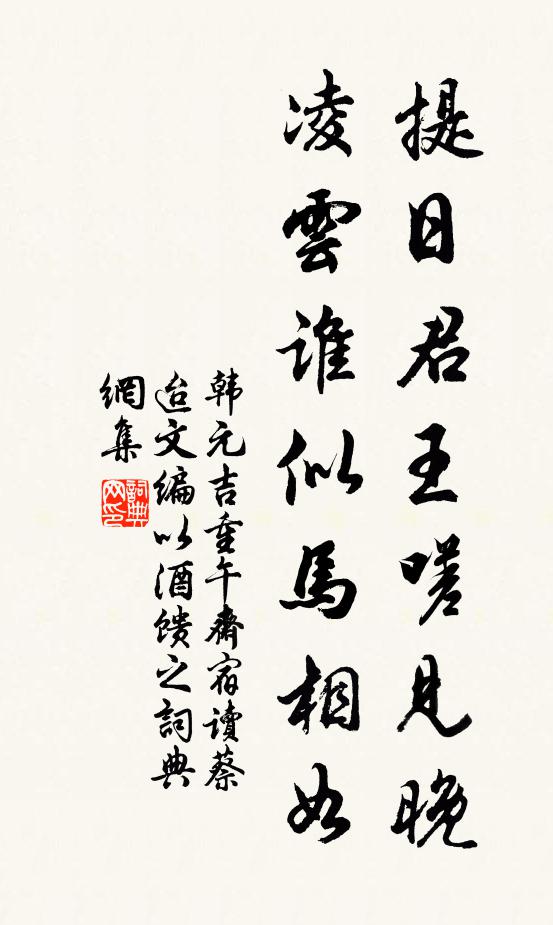 提日君王嗟見晚
凌雲誰似馬相如
韩元吉重午齋宿讀蔡
迨文編以酒馈之詞典
網集
詞典网印